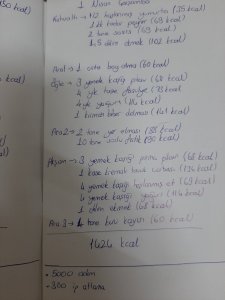 1 Nisan Çarşamba
Kahvaltı → 1/2 haşlanmış yumurta (35 kcal)
1 dk kadar peynir (69 kcal)
2 tane sosis (69 kcal)
1,5 dilim ekmek (102 kcal)
Ara 1 → 1 orta boy elma (60 kcal)
Öğle → 3 yemek kaşığı pilav (68 kcal)
4 yk taze fasulye (93 kcal)
4 yk yoğurt (114 kcal)
1 kumru biber dolması (141 kcal)
Ara 2 → 2 tane yer elması (38 kcal)
10 tane fındık (90 kcal)
Akşam → 3 yemek kaşığı pirinç pilavı (68 kcal)
1 kase kremalı tavuk çorbası (134 kcal)
4 yemek kaşığı haşlanmış et (69 kcal)
4 yemek kaşığı yoğurt (114 kcal)
1 dilim ekmek (68 kcal)
Ara 3 → 4 tane kuru kayısı (60 kcal)
1424 kcal
- 5000 adım
- 300 ip atlama